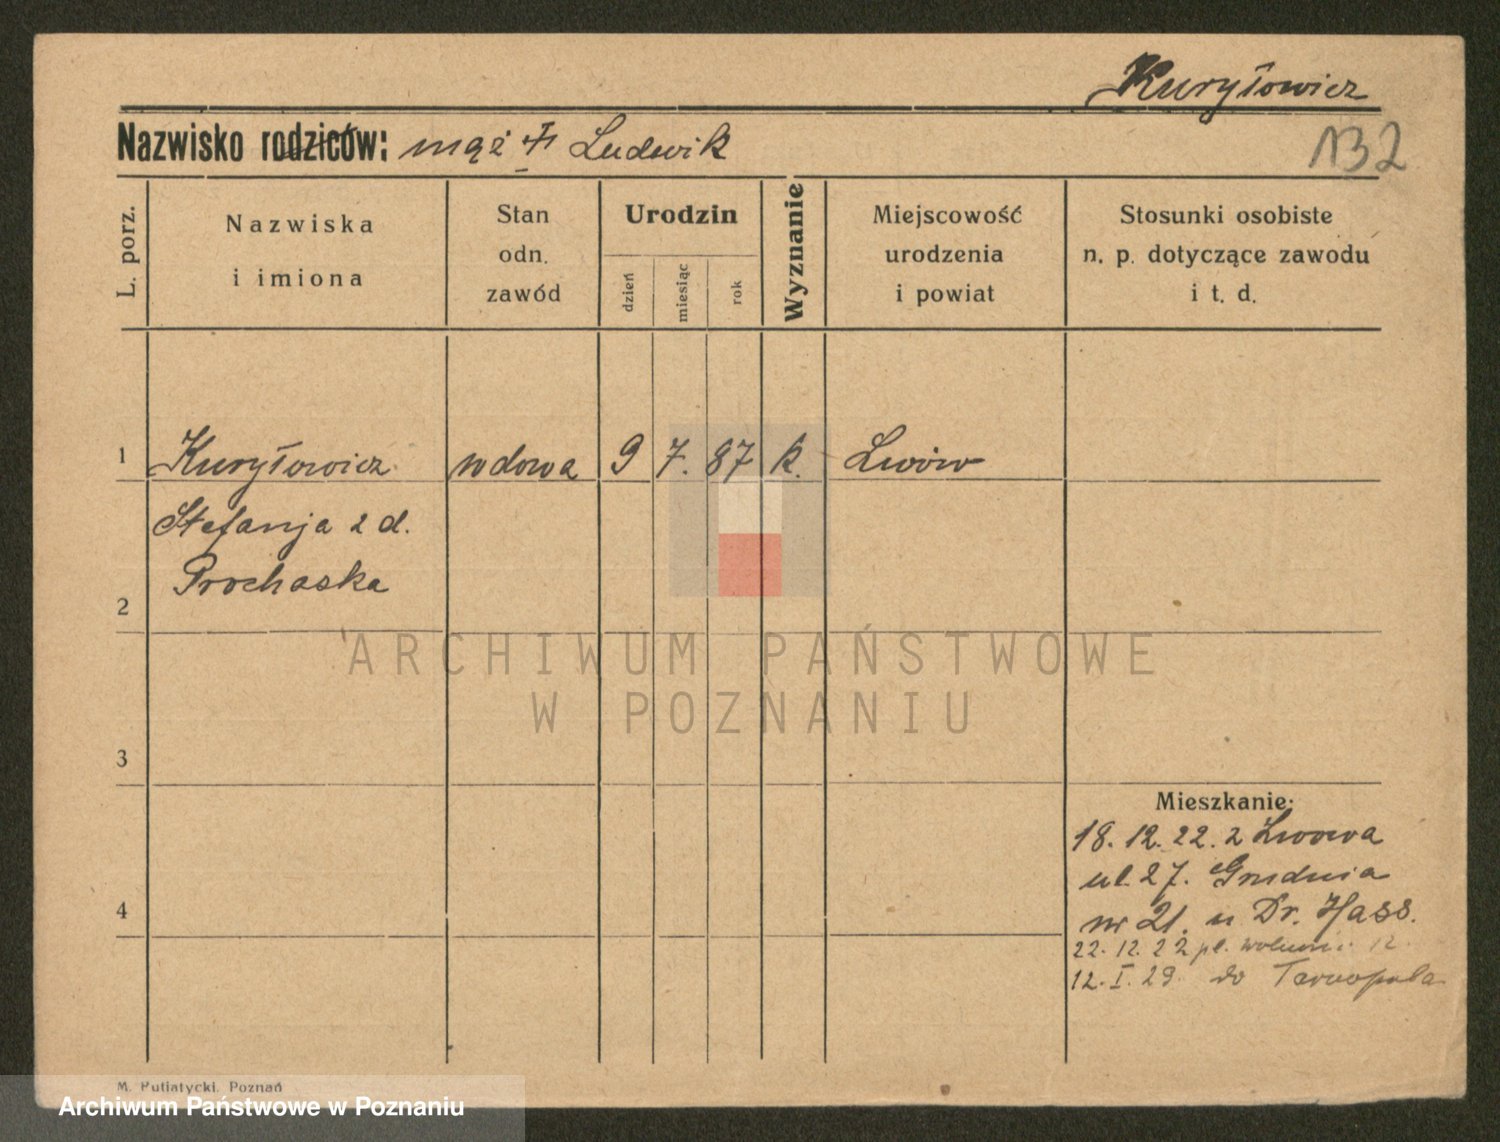 Kuryłowicz
132
Nazwisko rodziców: mąż Ludwik
L. porz.
Nazwiska
i imiona
Stan
odn.
zawód
Urodzin
dzień
miesiąc
rok
Wyznanie
Miejscowość
urodzenia
i powiat
Stosunki osobiste
n. p. dotyczące zawodu
i t. d.
1 Kuryłowicz wdowa 9 7. 87 k. Lwów
Stefanja z d.
Prochaska
2
3
4
Mieszkanie:
18. 12. 22. z Lwowa
ul. 27. Grudnia
nr 21. u Dr. Hass.
22. 12. 22 pl. 12.
12. I. 29. do Tarnopola
ARCHIWUM PAŃSTWOWE
W POZNANIU
M. Putiatycki, Poznań
Archiwum Państwowe w Poznaniu